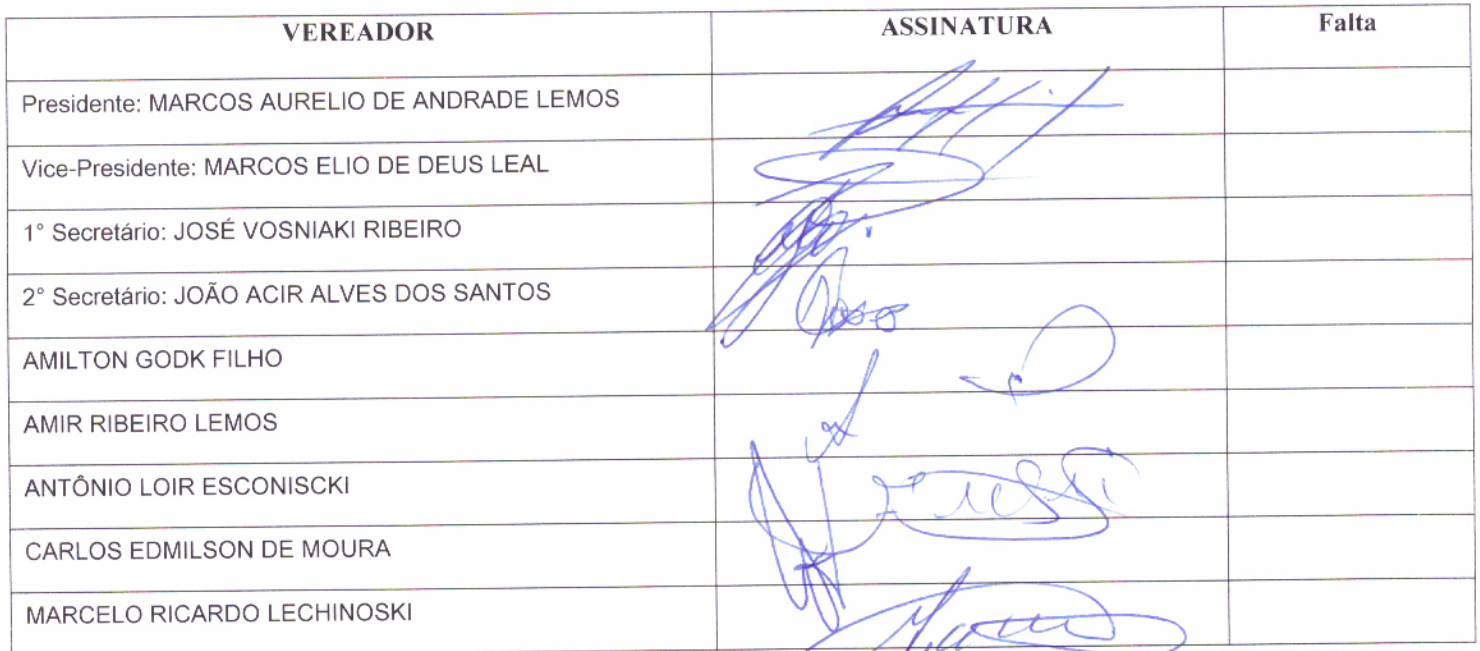 VEREADOR ASSINATURA Falta
Presidente: MARCOS AURELIO DE ANDRADE LEMOS
Vice-Presidente: MARCOS ELIO DE DEUS LEAL
1° Secretário: JOSÉ VOSNIAKI RIBEIRO
2° Secretário: JOÃO ACIR ALVES DOS SANTOS
AMILTON GODK FILHO
AMIR RIBEIRO LEMOS
ANTÔNIO LOIR ESCONISCKI
CARLOS EDMILSON DE MOURA
MARCELO RICARDO LECHINOSKI